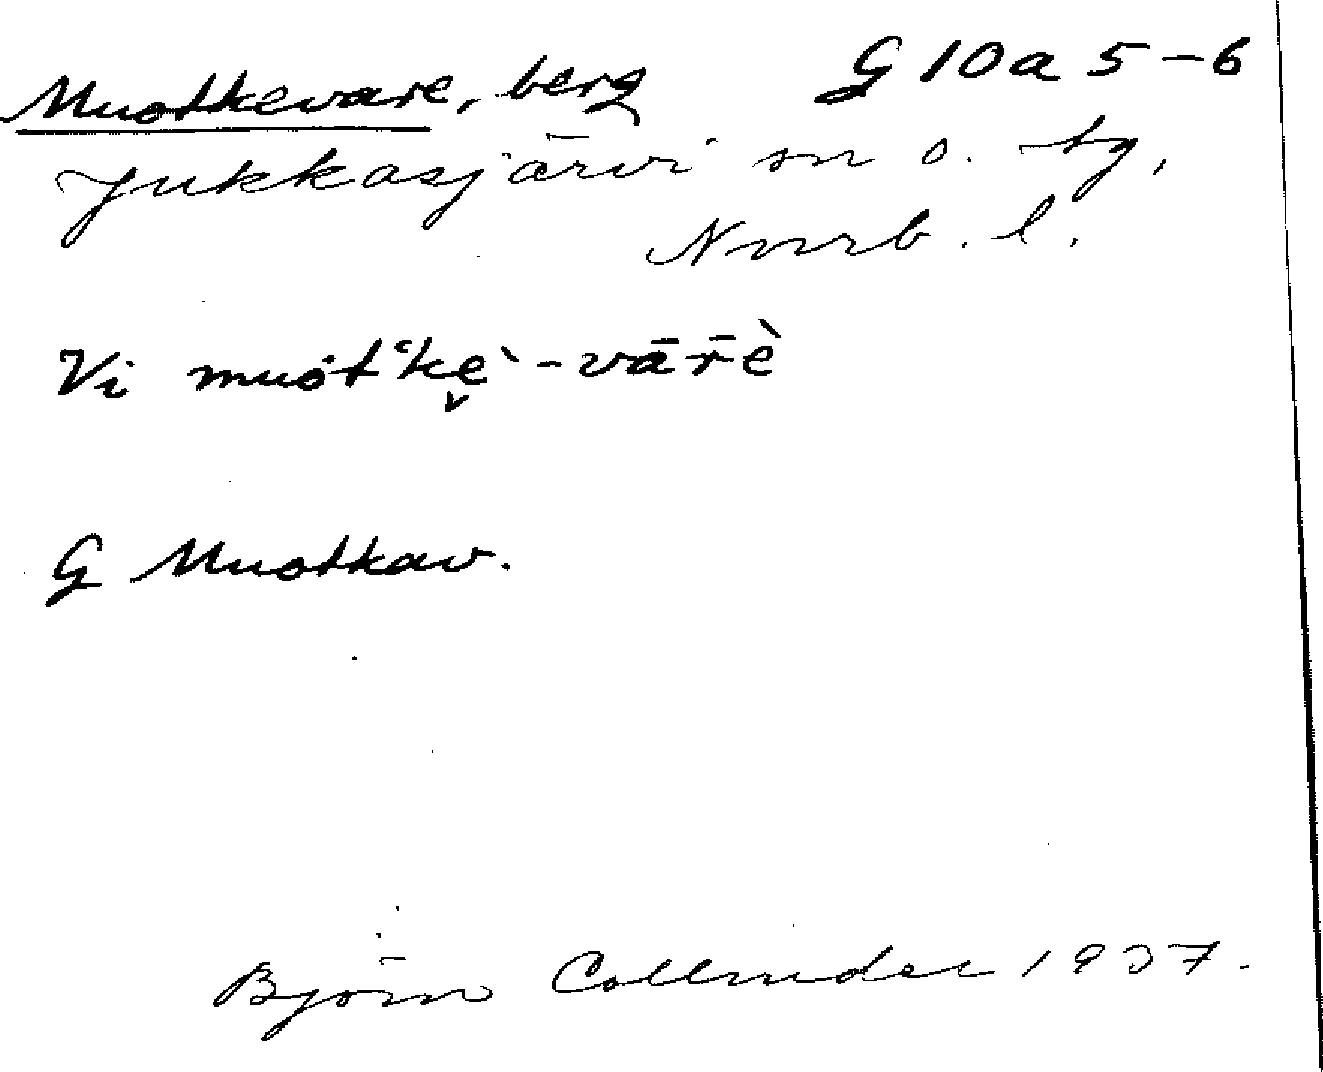 Muotkevare, berg G 10a 5-6
Jukkasjärvi sn o. tg,
Norrb. l.
Vi muότʿkę̌̀-vār̄ὲ
G Muotkav.
Björn Collinder 1937.